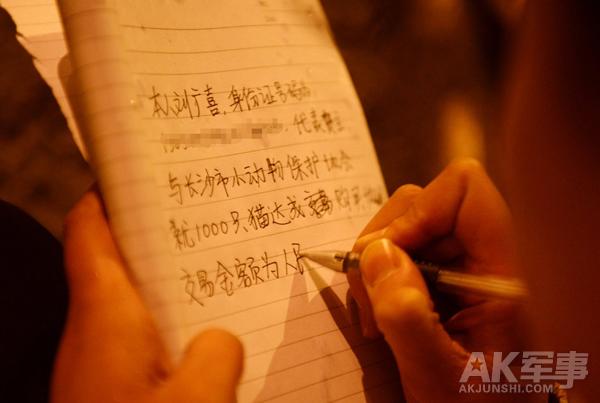 本人刘广喜，身份证号码为
代表
与长沙市小动物保护协会
就1000只猫达成交易
交易金额为人民
AK军事
AKJUNSHI.COM